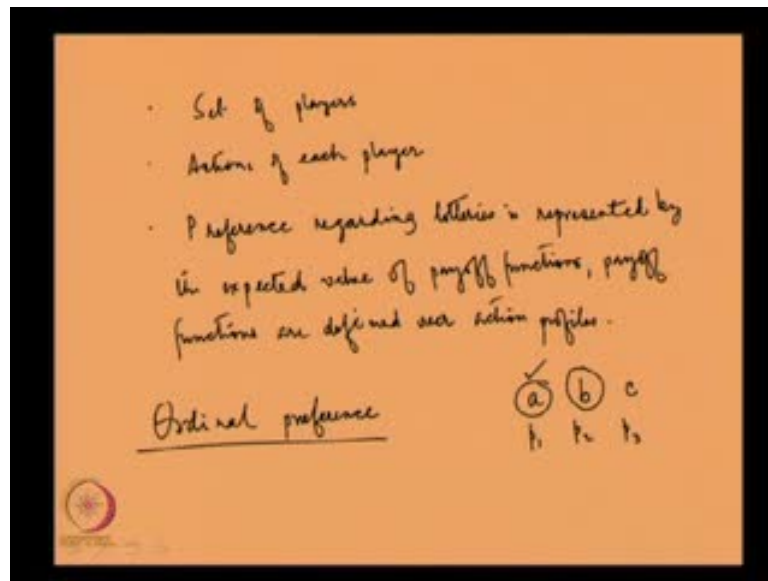 · Set of players
· Actions of each player
· Preference regarding lotteries is represented by
the expected value of payoff functions, payoff
functions are defined over action profiles.
Ordinal preference
a b c
p₁ p₂ p₃